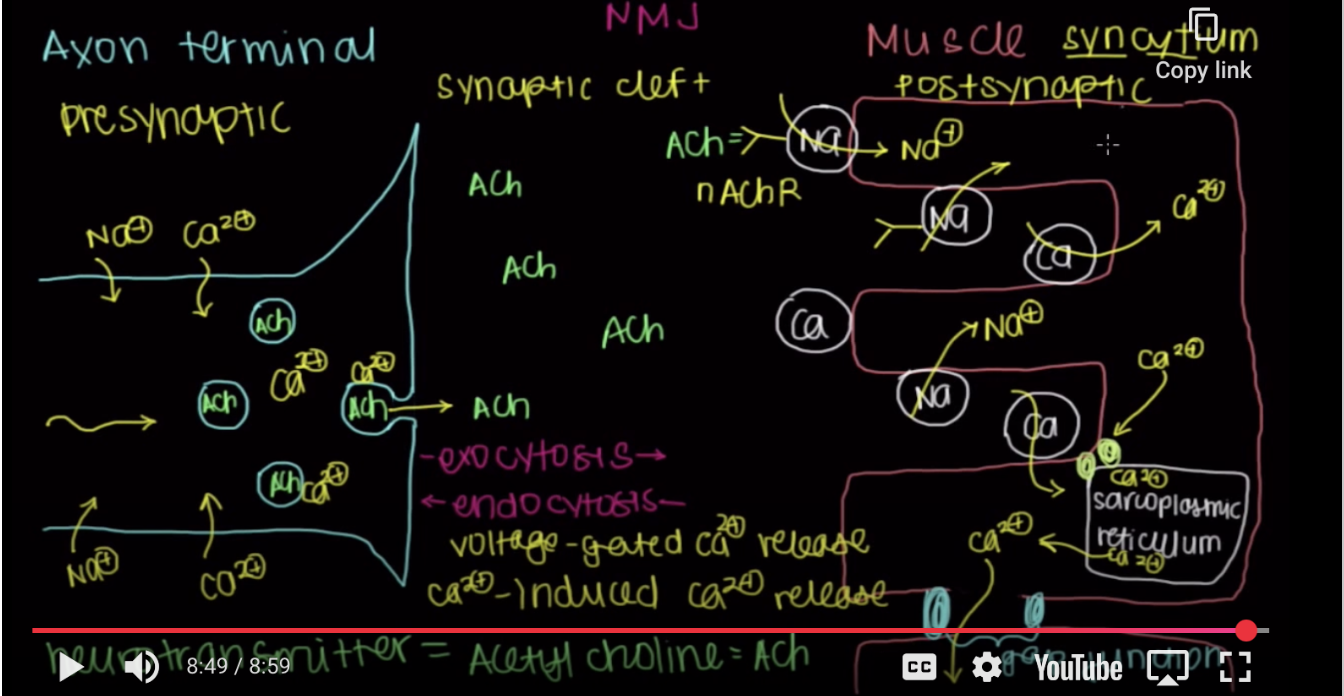 NMJ
Axon terminal
presynaptic
synaptic cleft
Muscle syncytium
postsynaptic
Copy link
ACh=
nAChR
Na
Na+
ACh
Na
Ca2+
Na+ Ca2+
Ca
ACh
ACh
Ca
ACh
Na
Na+
Ca2+
Ca2+
Ca2+
ACh
ACh
ACh
Ca
ACh
Ca2+
-exocytosis→
←endocytosis-
Ca2+
sarcoplasmic
reticulum
Ca2+
Ca2+
voltage-gated Ca2+ release
Ca2+-induced Ca2+ release
Na+
Ca2+
neurotransmitter = Acetylcholine = ACh
gap junction
8:49 / 8:59
CC
YouTube